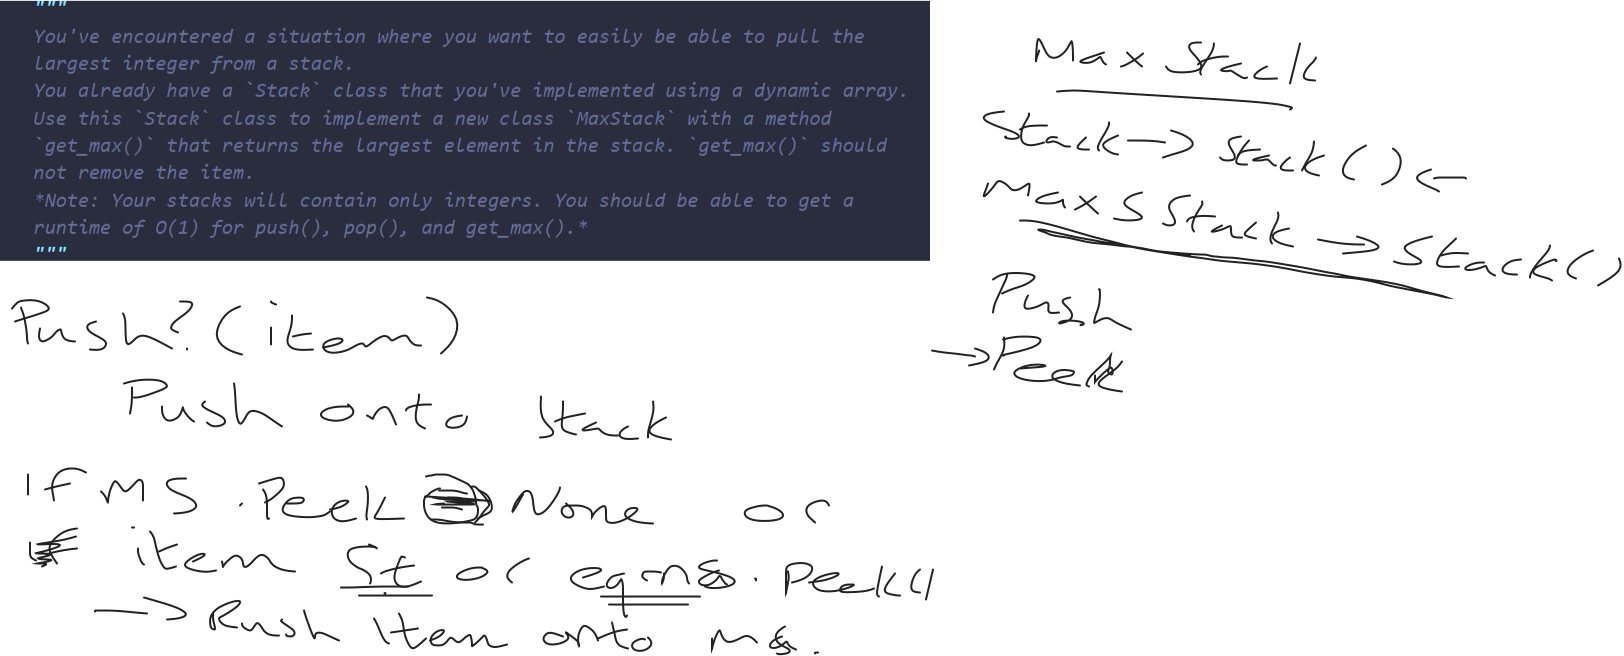 """
You've encountered a situation where you want to easily be able to pull the
largest integer from a stack.
You already have a `Stack` class that you've implemented using a dynamic array.
Use this `Stack` class to implement a new class `MaxStack` with a method
`get_max()` that returns the largest element in the stack. `get_max()` should
not remove the item.
*Note: Your stacks will contain only integers. You should be able to get a
runtime of O(1) for push(), pop(), and get_max().*
"""
Max Stack
Stack → Stack() ←
Max S Stack → Stack()
Push
→ Peek
Push?(item)
Push onto Stack
If MS.Peek = None or
item or Peek()
→ Push Item onto ms.